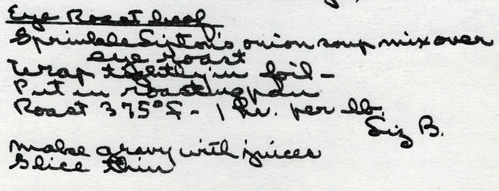 Eye Roast beef
Sprinkle Lipton's onion soup mix over
eye roast
Wrap tightly in foil -
Put in roasting pan
Roast 375°F - 1 hr. per lb.
Liz B.
make gravy with juices
Slice thin